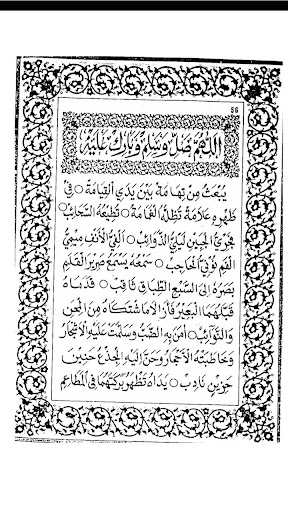 56
اَللّٰهُمَّ صَلِّ وَسَلِّمْ وَبَارِكْ عَلَيْهِ
يُبْعَثُ مِنْ تِهَامَةَ بَيْنَ يَدَيِ الْقِيَامَةِ ○ فِي
ظَهْرِهِ عَلَامَةٌ تُظِلُّهُ الْغَمَامَةُ ○ تُطِيْعُهُ السَّحَائِبُ
فَجْرِيُّ الْجَبِيْنِ لَيْلِيُّ الذَّوَائِبِ ○ اَلِفِيُّ الْاَنْفِ مِيْمِيُّ
الْفَمِ نُوْنِيُّ الْحَاجِبِ ○ سَمْعُهُ يَسْمَعُ صَرِيْرَ الْقَلَمِ
بَصَرُهُ اِلَى السَّبْعِ الطِّبَاقِ ثَاقِبٌ ○ قَدَمَاهُ
قَبَّلَهُمَا الْبَعِيْرُ فَاَزَالَا مَا اشْتَكَاهُ مِنَ الْمِحَنِ
وَالنَّوَائِبِ ○ اٰمَنَ بِهِ الضَّبُّ وَسَلَّمَتْ عَلَيْهِ الْاَشْجَارُ
وَخَاطَبَتْهُ الْاَحْجَارُ وَحَنَّ اِلَيْهِ الْجِذْعُ حَنِيْنَ
حَزِيْنٍ نَادِبٍ ○ يَدَاهُ تَظْهَرُ بَرَكَتُهُمَا فِي الْمَطَاعِمِ